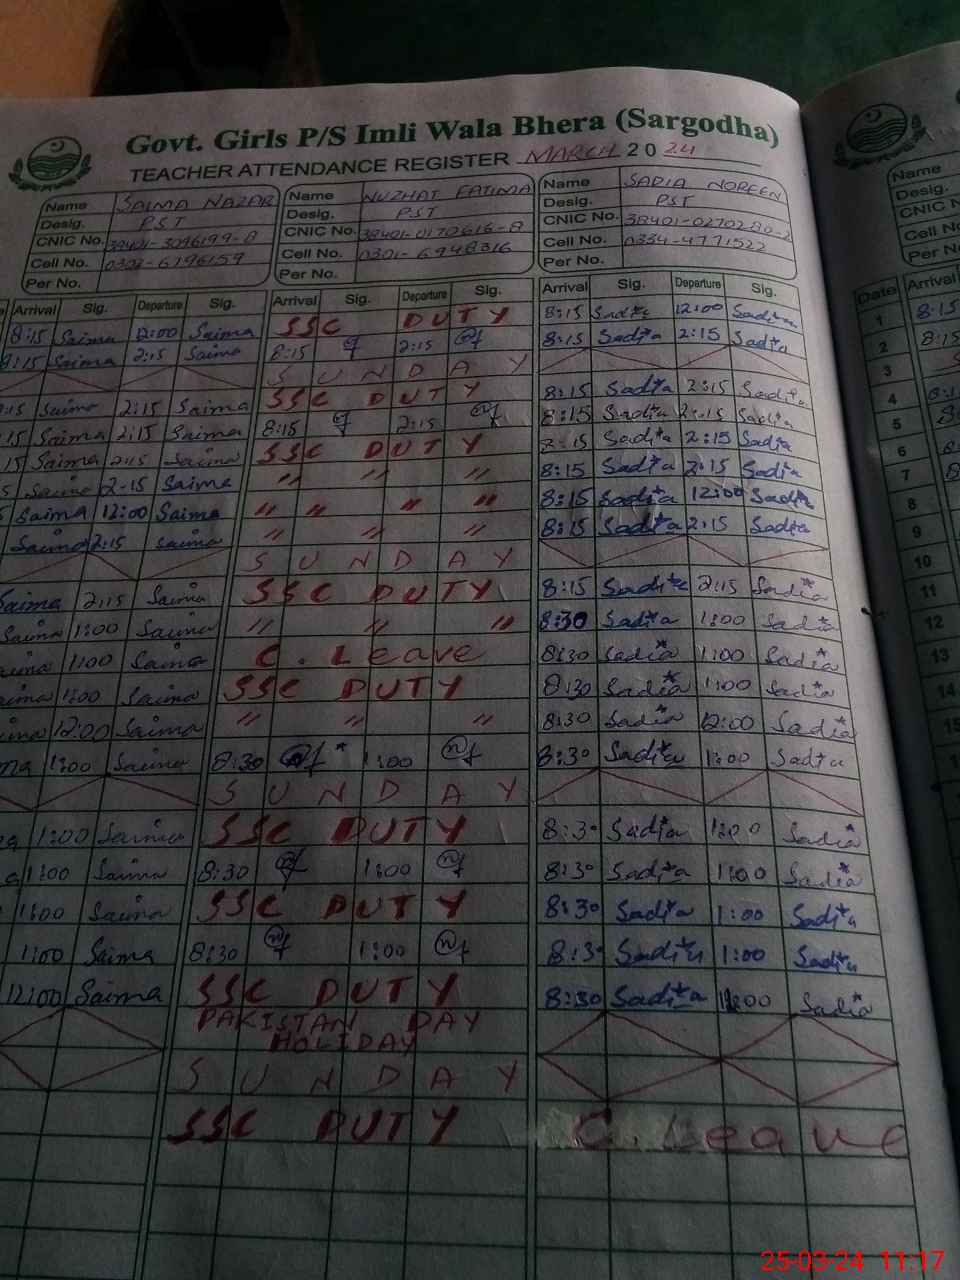 Govt. Girls P/S Imli Wala Bhera (Sargodha)
TEACHER ATTENDANCE REGISTER MARCH 2024
Name SAIMA NAZAR Name NUZHAT FATIMA Name SADIA NOREEN
Desig. PST Desig. PST Desig. PST
CNIC No. CNIC No. 38401-0170616-8 CNIC No. 38401-0270280-2
Cell No. Cell No. 0301-6948316 Cell No. 0334-4771522
Per No. Per No. Per No.
Arrival Sig. Departure Sig. Arrival Sig. Departure Sig. Arrival Sig. Departure Sig. Date Arrival
8:15 Saima 12:00 Saima SSC DUTY 8:15 Sadia 12:00 Sadia 1 8:15
8:15 Saima 2:15 Saima 8:15 2:15 8:15 Sadia 2:15 Sadia 2 8:15
SUNDAY 3
:15 Saima 2:15 Saima SSC DUTY 8:15 Sadia 2:15 Sadia 4
15 Saima 2:15 Saima 8:15 2:15 8:15 Sadia 2:15 Sadia 5
15 Saima 2:15 Saima SSC DUTY 8:15 Sadia 2:15 Sadia 6
5 Saima 2-15 Saima " " " 8:15 Sadia 2:15 Sadia 7
5 Saima 12:00 Saima " " " " 8:15 Sadia 12:00 Sadia 8
Saima 2:15 Saima " " " 8:15 Sadia 2:15 Sadia 9
SUNDAY 10
Saima 2:15 Saima SSC DUTY 8:15 Sadia 2:15 Sadia 11
Saima 1:00 Saima " " " 8:30 Sadia 1:00 Sadia 12
aima 1:00 Saima C. Leave 8:30 Sadia 1:00 Sadia 13
aima 1:00 Saima SSC DUTY 8:30 Sadia 1:00 Sadia 14
ima 12:00 Saima " " " 8:30 Sadia 12:00 Sadia 15
ma 1:00 Saima 8:30 1:00 8:30 Sadia 1:00 Sadia
SUNDAY
1:00 Saima SSC DUTY 8:30 Sadia 1:00 Sadia
1:00 Saima 8:30 1:00 8:30 Sadia 1:00 Sadia
1:00 Saima SSC DUTY 8:30 Sadia 1:00 Sadia
1:00 Saima 8:30 1:00 8:30 Sadia 1:00 Sadia
12:00 Saima SSC DUTY 8:30 Sadia Sadia
PAKISTAN DAY
HOLIDAY
SUNDAY
SSC DUTY C. Leave
25-03-24 11:17